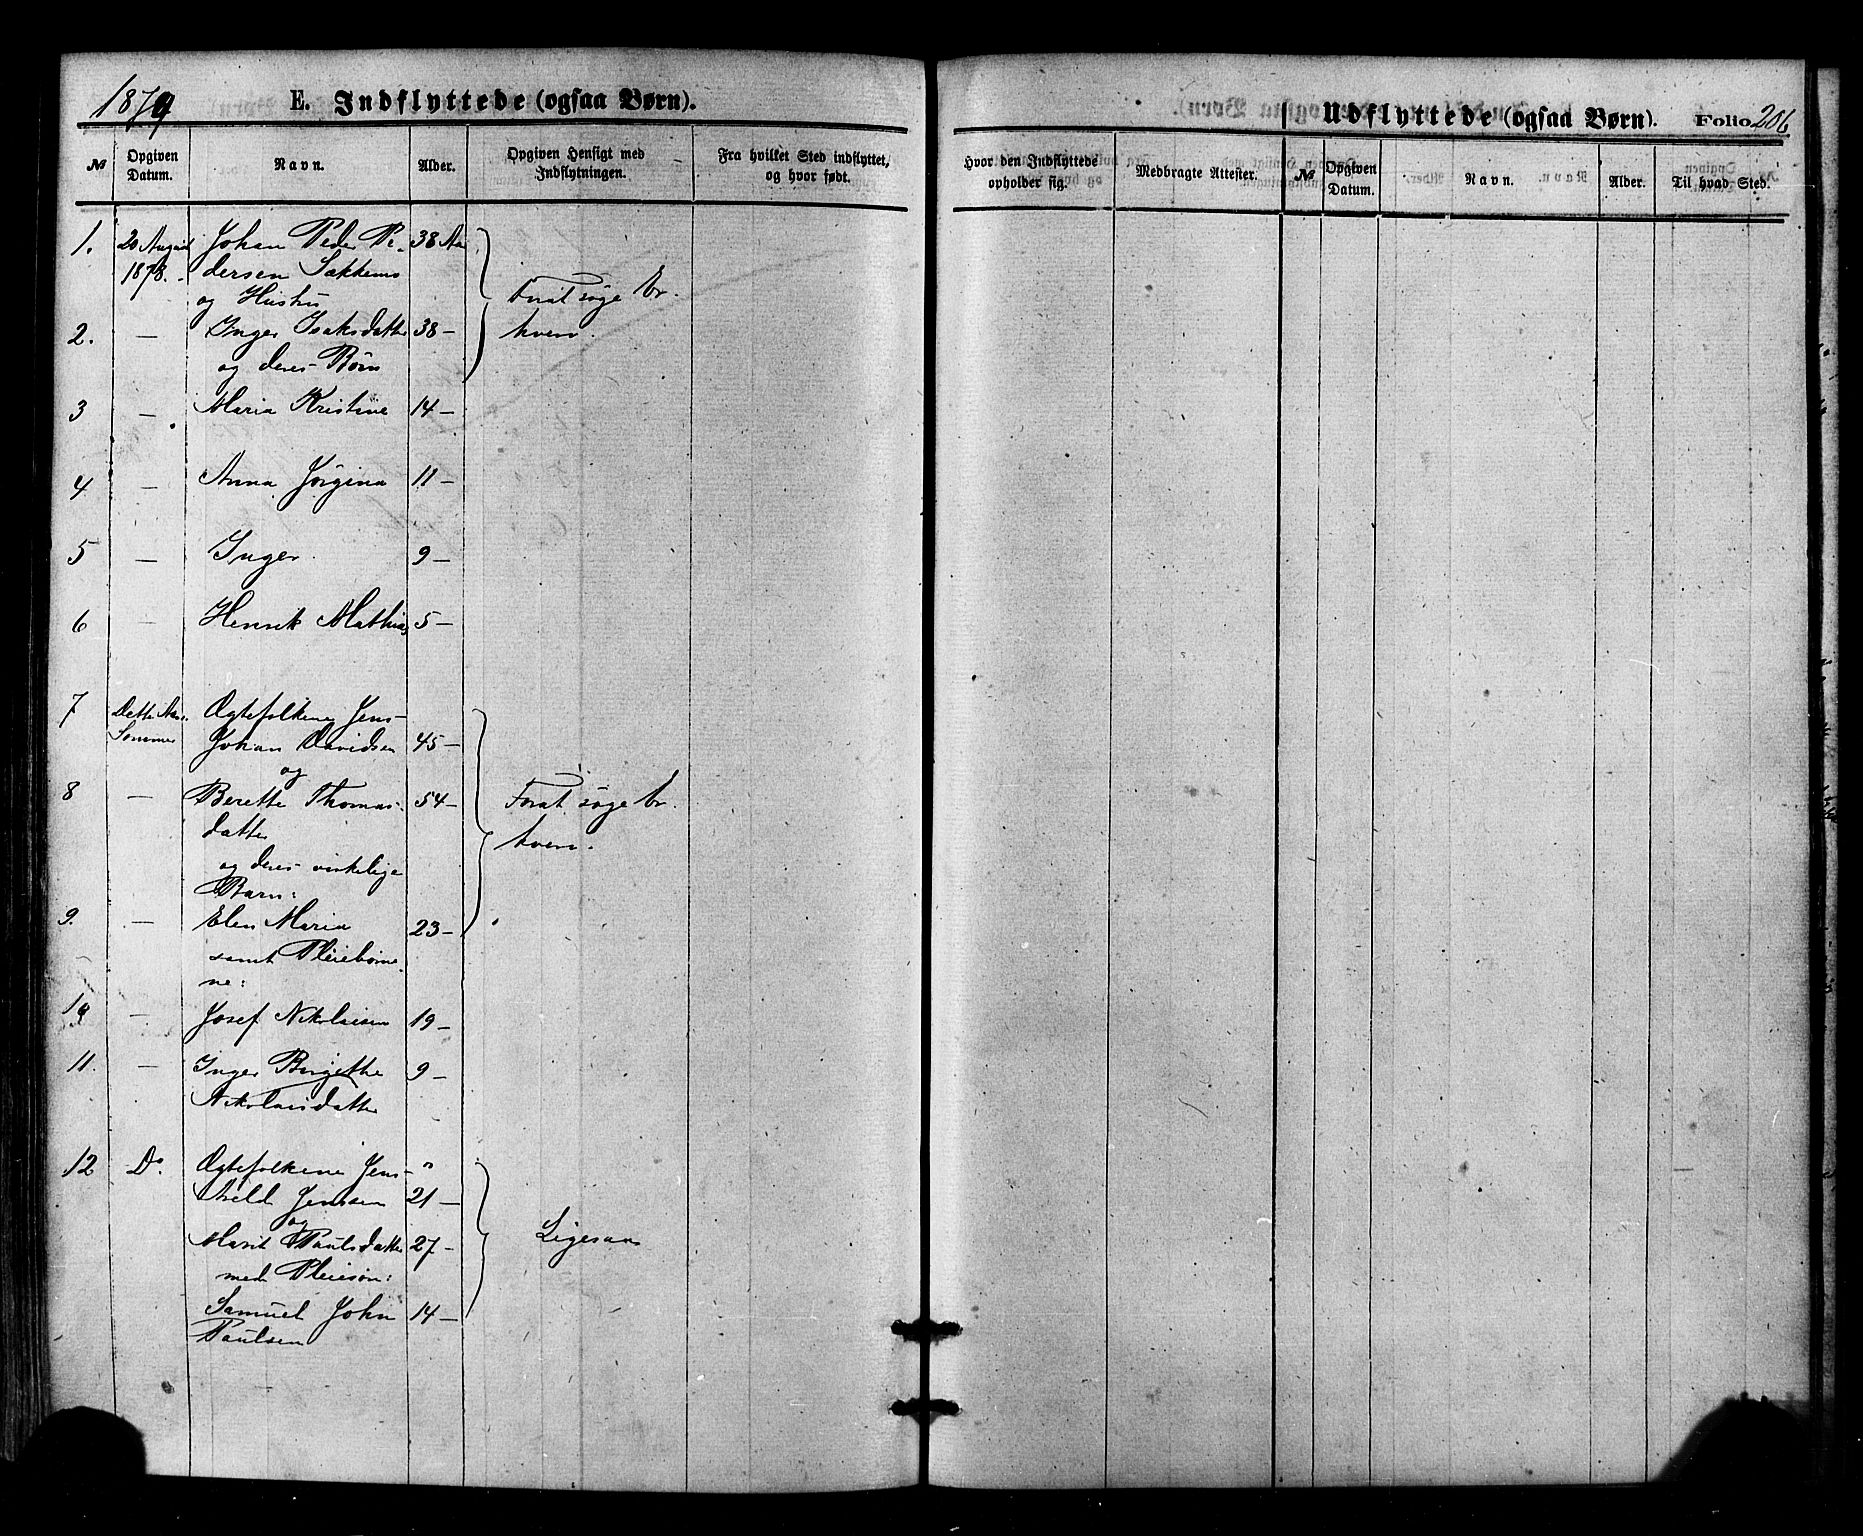 1879 E. Indflyttede (ogsaa Børn).
№ Opgiven Datum. Navn. Alder. Opgiven Hensigt med Indflytningen. Fra hvilket Sted indflyttet, og hvor født.
1. 20 August Johan Peder Pe- 38 Aar
1878. dersen Sækkemo
og Hustru Forat søge Er-
2. — Inger Isaksdatter 38 — hverv.
og deres Børn
3 — Maria Kristine 14 —
4 — Anna Jørgina 11 —
5 — Inger 9 —
6 — Henrik Mathias 5 —
7 Dette Aars Ægtefolkene Jens
Sommer Johan Davidsen 45 —
og
8 — Berette Thomas- 54 — Forat søge Er-
datter hverv.
og deres virkelige
Barn:
9. — Elen Maria 23 —
samt Pleiebørne-
ne:
10 — Josef Nikolaisen 19 —
11. — Inger Birgithe 9 —
Nikolaisdatter
12 Do. Ægtefolkene Jens
Areld Jenssen 21 —
og
Marit Paulsdatter 27 — Ligesaa
med Pleiesøn:
Samuel John 14 —
Paulsen
Udflyttede (ogsaa Børn). Folio 206
Hvor den Indflyttede opholder sig. Medbragte Attester. № Opgiven Datum. Navn. Alder. Til hvad Sted.